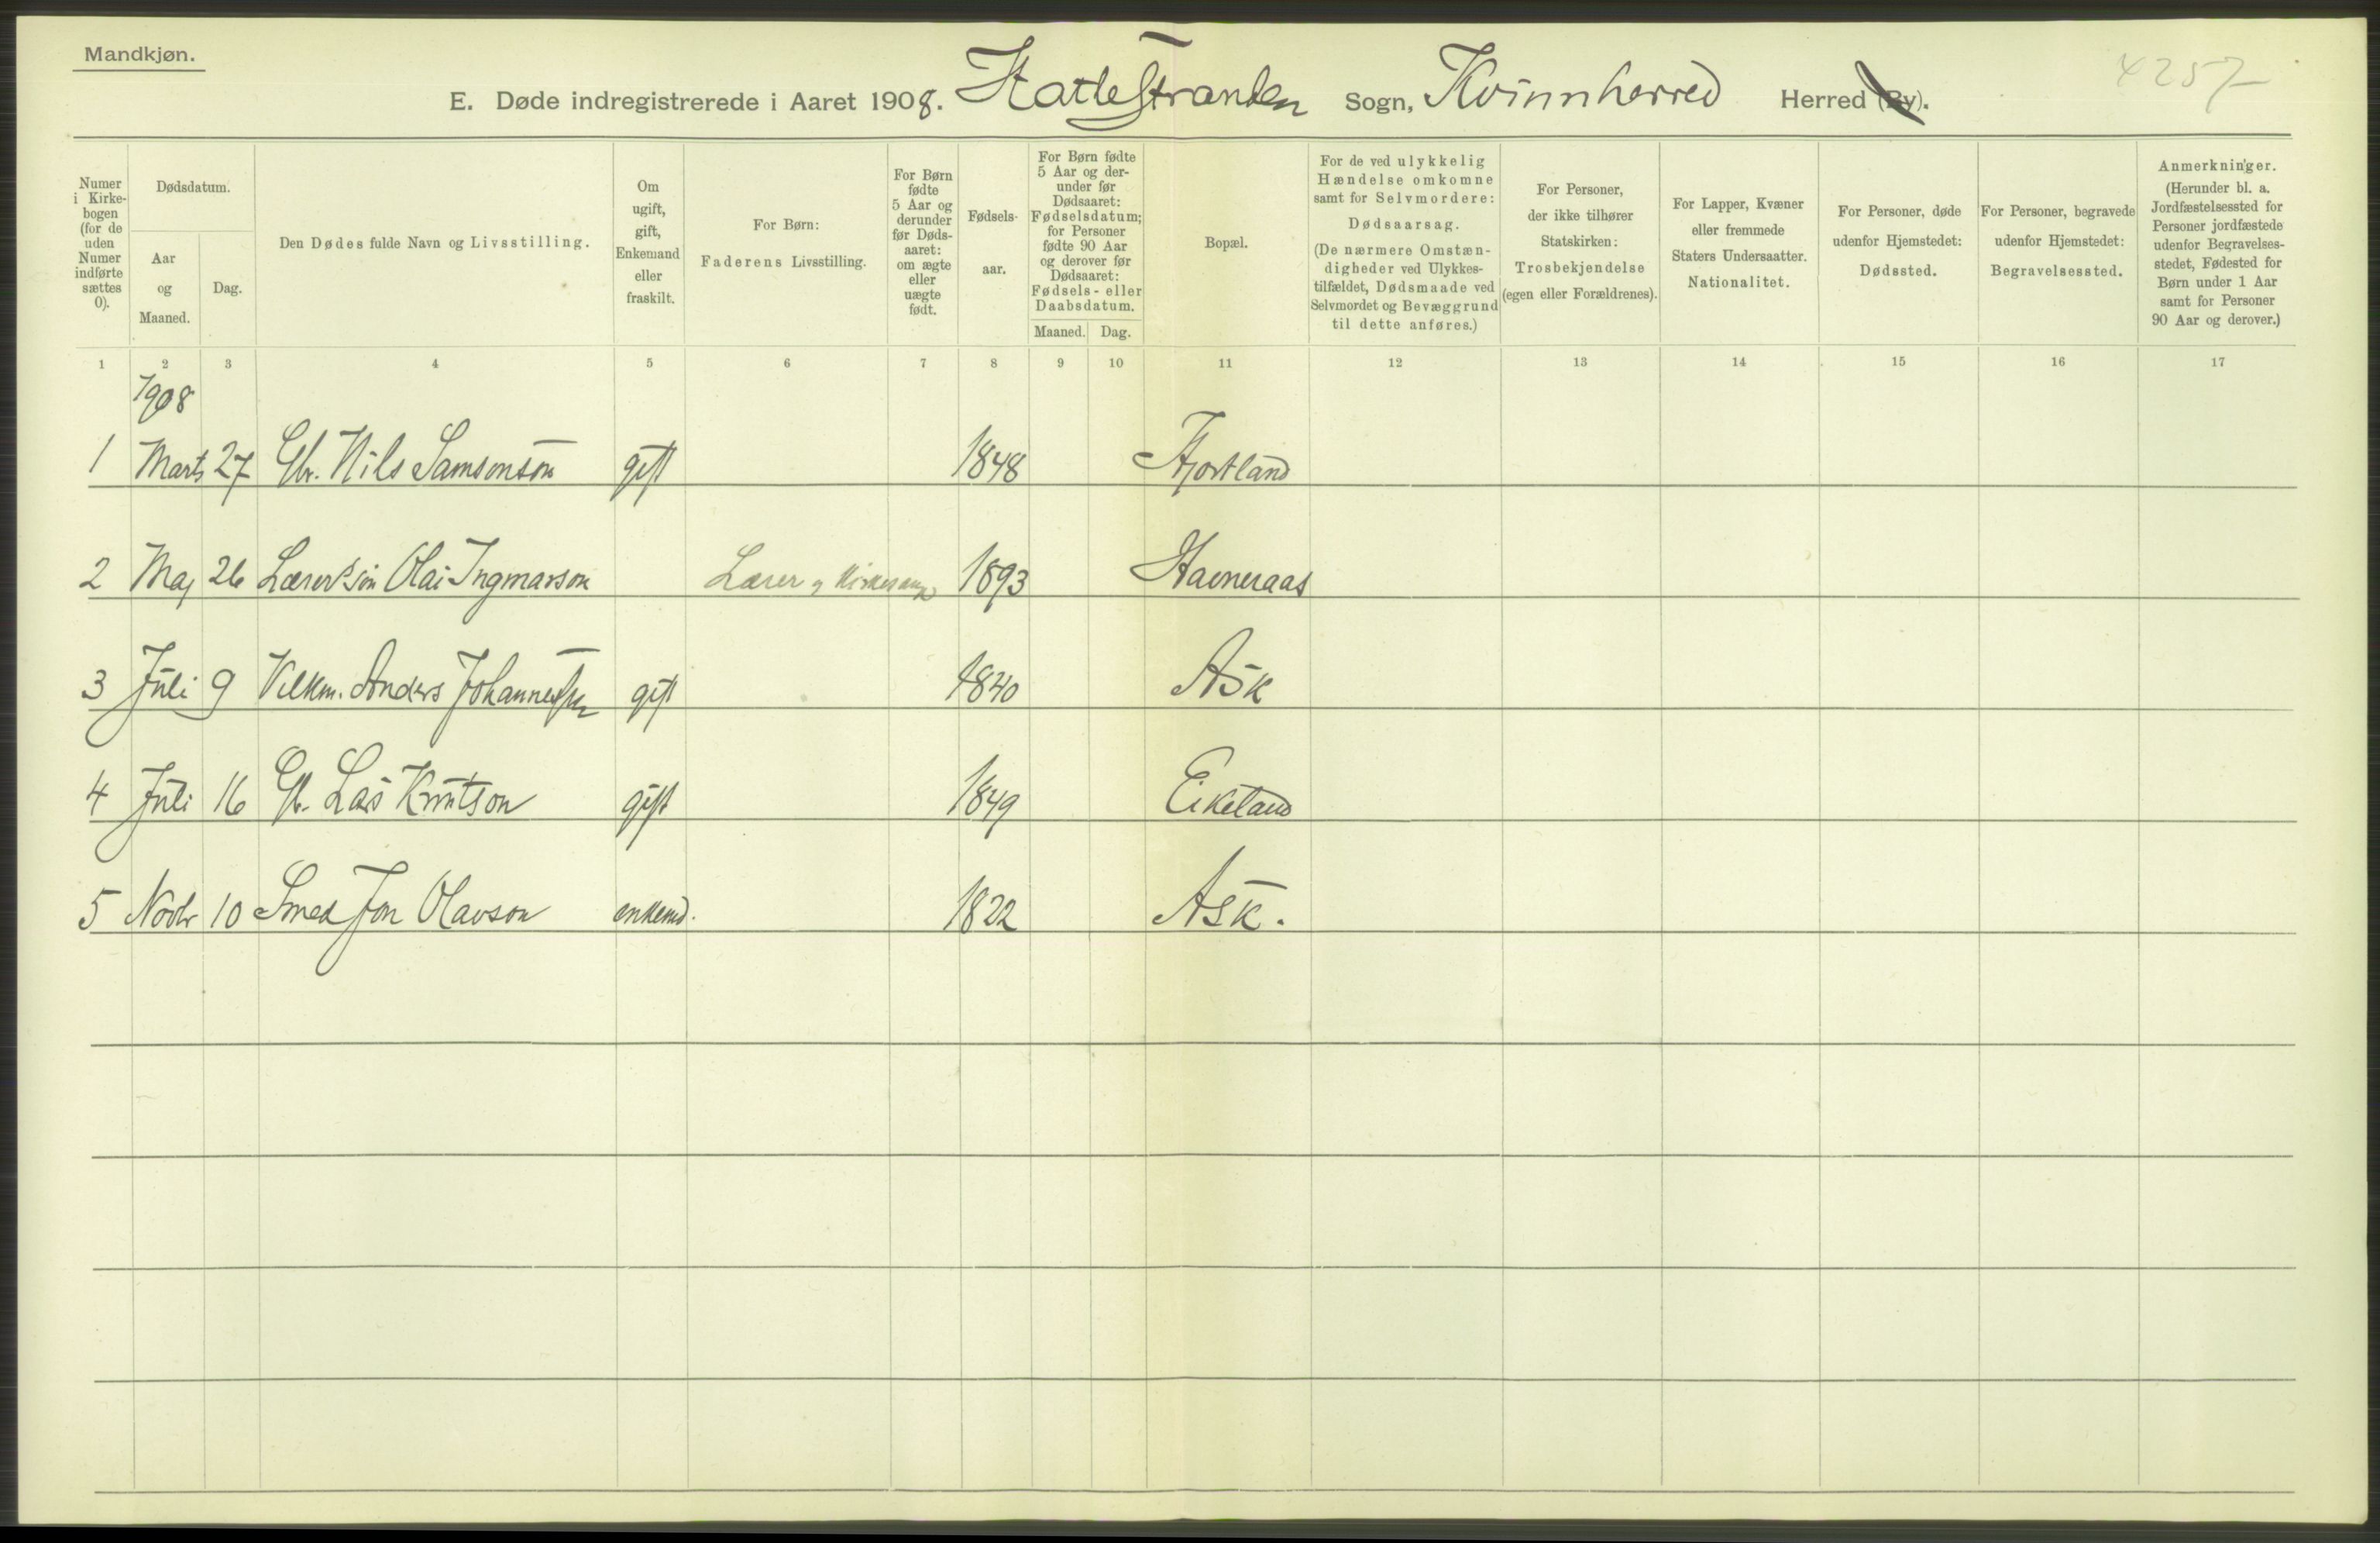 Mandkjøn.
4257
E. Døde indregistrerede i Aaret 1908. Sogn, Kvinnherred Herred (By).
Numer i Kirkebogen (for de uden Numer indførte sættes 0).
Dødsdatum.
Aar og Maaned.
Dag.
Den Dødes fulde Navn og Livsstilling.
Om ugift, gift, Enkemand eller fraskilt.
For Børn: Faderens Livsstilling.
For Børn fødte 5 Aar og derunder før Dødsaaret: om ægte eller uægte født.
Fødselsaar.
For Børn fødte 5 Aar og derunder før Dødsaaret: Fødselsdatum; for Personer fødte 90 Aar og derover før Dødsaaret: Fødsels- eller Daabsdatum.
Maaned. Dag.
Bopæl.
For de ved ulykkelig Hændelse omkomne samt for Selvmordere: Dødsaarsag. (De nærmere Omstændigheder ved Ulykkestilfældet, Dødsmaade ved Selvmordet og Bevæggrund til dette anføres.)
For Personer, der ikke tilhører Statskirken: Trosbekjendelse (egen eller Forældrenes).
For Lapper, Kvæner eller fremmede Staters Undersaatter. Nationalitet.
For Personer, døde udenfor Hjemstedet: Dødssted.
For Personer, begravede udenfor Hjemstedet: Begravelsessted.
Anmerkninger. (Herunder bl. a. Jordfæstelsessted for Personer jordfæstede udenfor Begravelsesstedet, Fødested for Børn under 1 Aar samt for Personer 90 Aar og derover.)
1 2 3 4 5 6 7 8 9 10 11 12 13 14 15 16 17
1908
1 Marts 27 Gbr. Nils Samsonson gift 1848 Fjortland
2 Maj 26 Olai Ingmarson Lærer 1893
3 Juli 9 Vilkm. Anders Johannessen gift 1840 Ask
4 Juli 16 Gb. Las Knutson gift 1849 Eikeland
5 Novbr 10 Smed Jon Olavson enkemd. 1822 Ask.